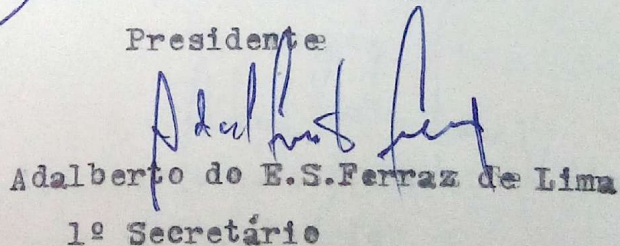 Presidente
Adalberto do E.S.Ferraz de Lima
1º Secretário